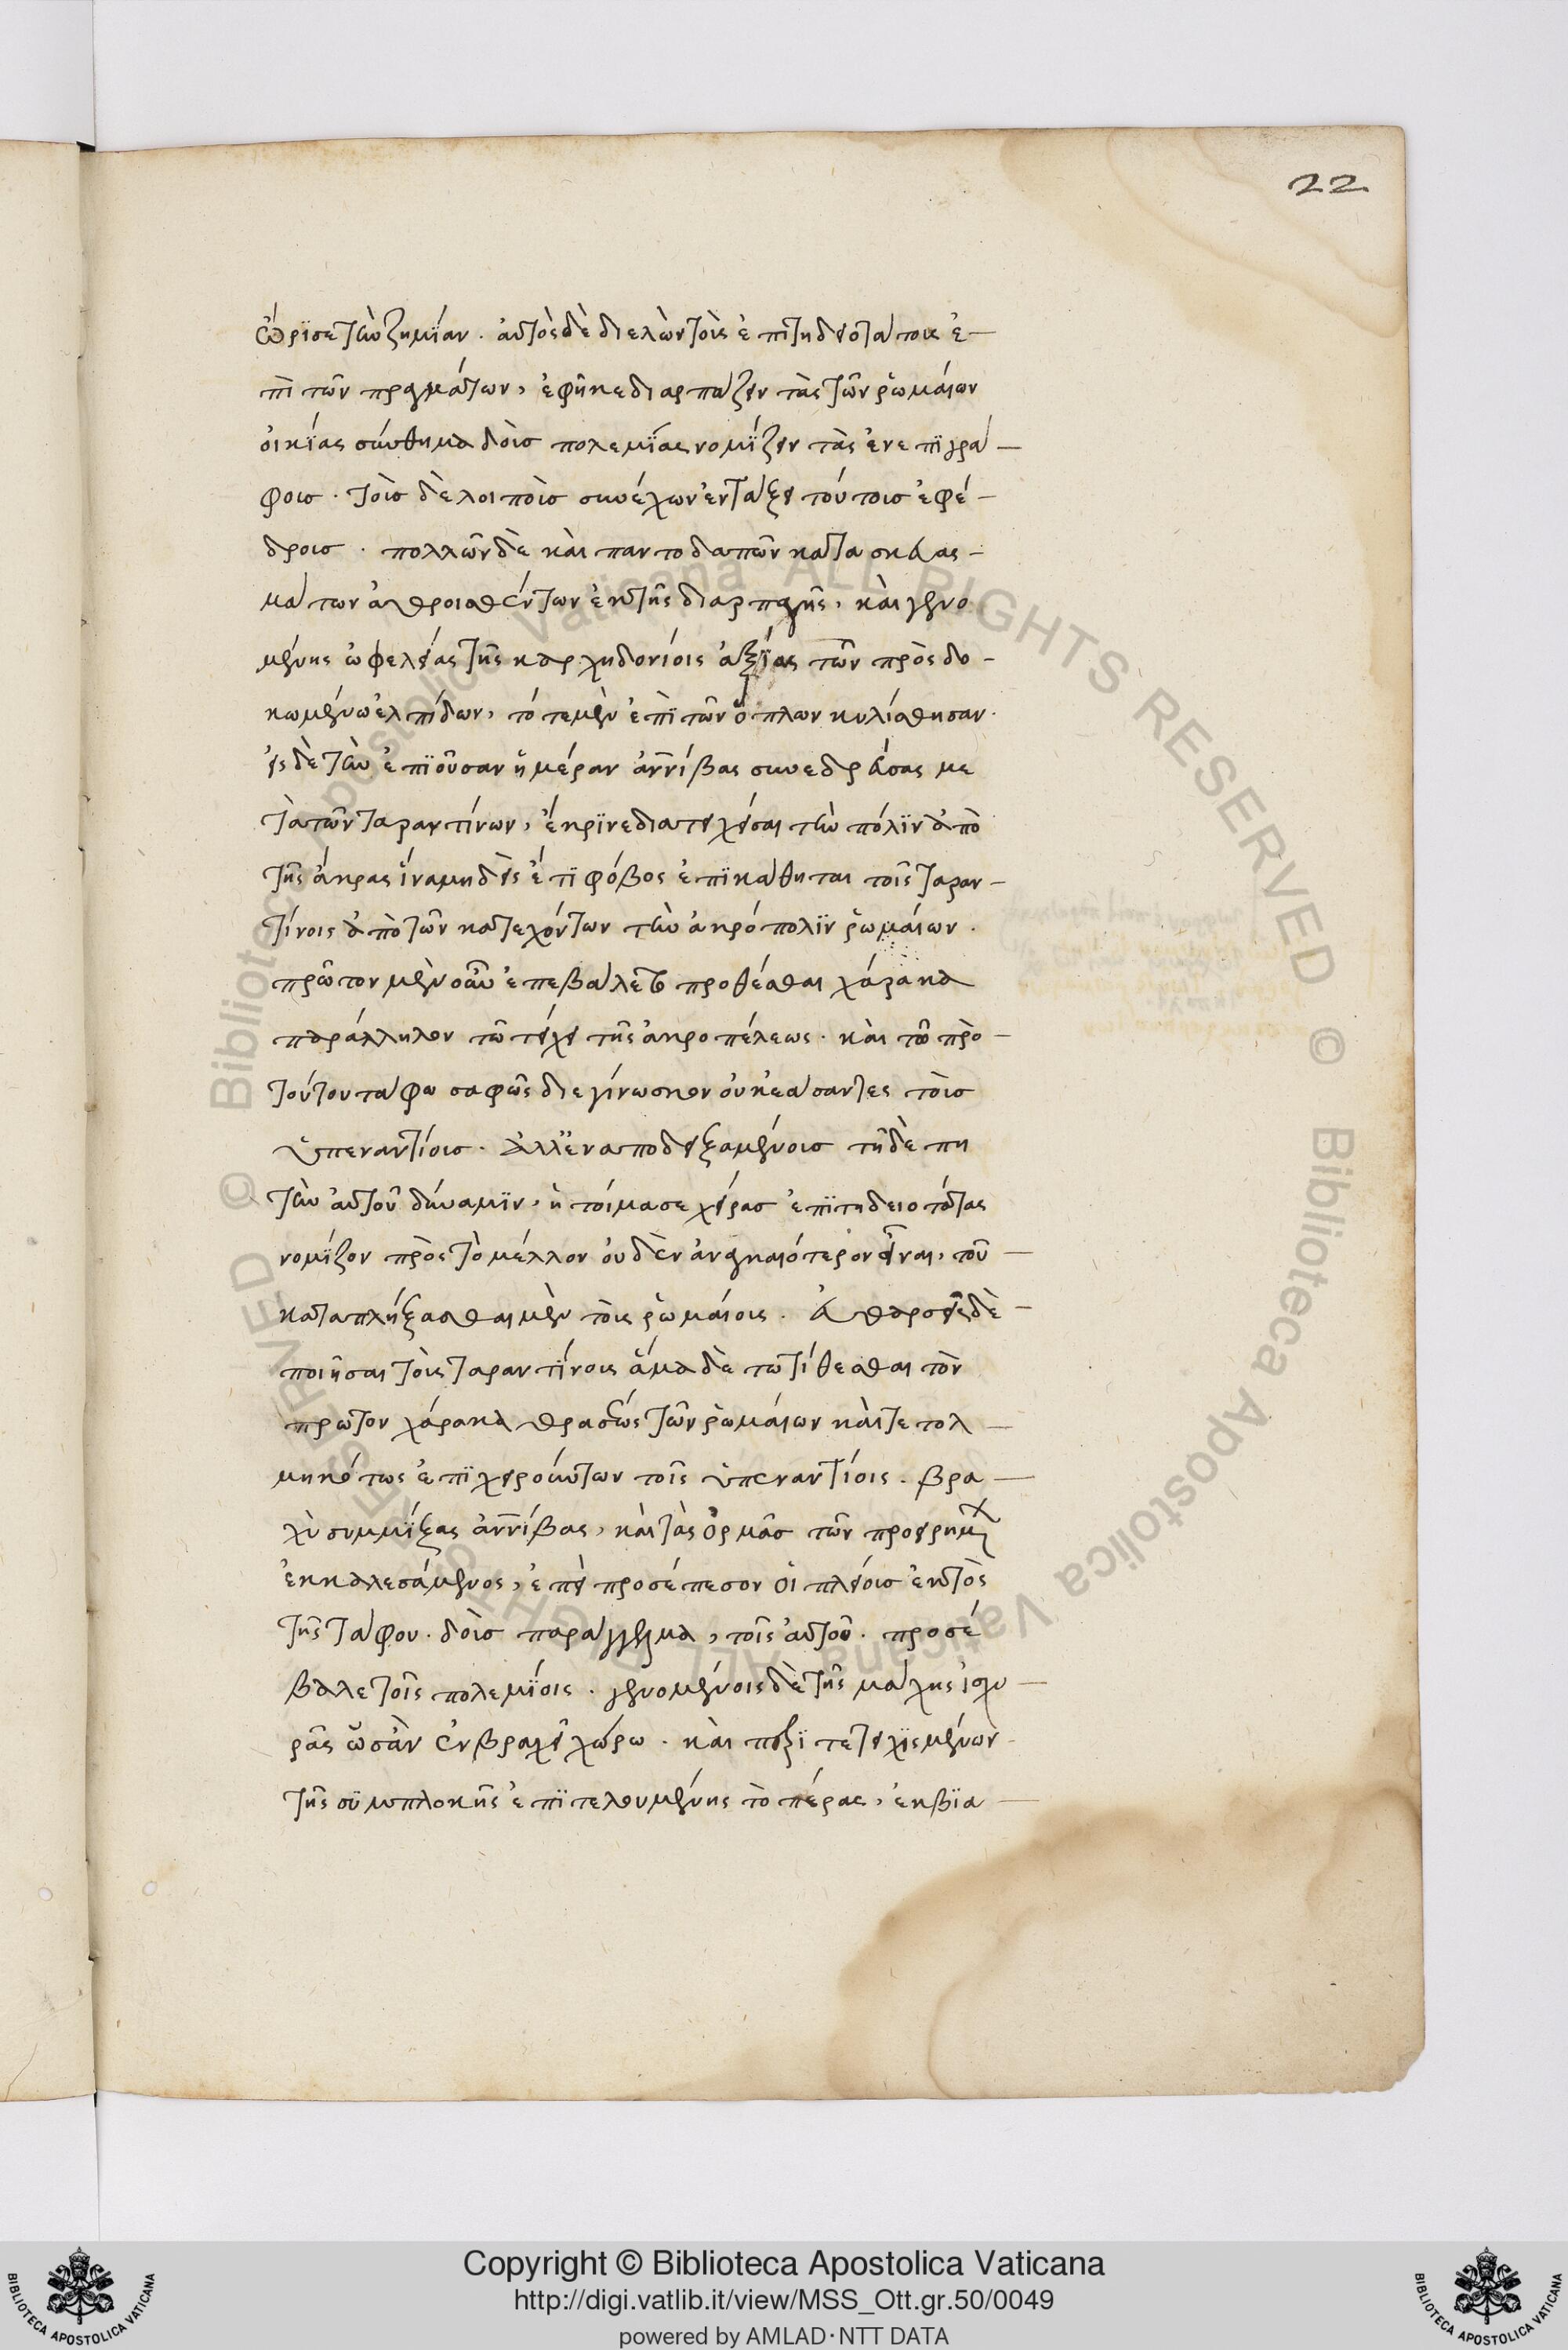 22
ὥρϊσε τὴν ζημΐαν. αὐτὸς δὲ διελὼν τοὺς ἐπιτηδειοτάτους ἐ-
πὶ τῶν πραγμάτων, ἐφῆκε διαρπάζειν τὰς τῶν ῥωμαίων
οἰκΐας σύνθημα δοὺσ πολεμΐας νομΐζειν τὰς ἀνεπϊγρά-
φουσ. τοὺσ δὲ λοιποὺσ συνέχων ἐν τάξει τούτοισ ἐφέ-
δρουσ. πολλῶν δὲ καὶ παντοδαπῶν κατασκευασ-
μάτων ἀθροισθέντων ἐκ τῆς διαρπαγῆς, καὶ γενο
μένης ὠφελείας τῆς καρχηδονίοις ἀξΐας τῶν προσδο-
κωμένων ἐλπίδων, τότε μὲν ἐπῒ τῶν ὅπλων ηυλίσθησαν.
εἰς δὲ τὴν ἐπϊοῦσαν ἡμέραν ἀννίβας συνεδρεύσας με
τὰ τῶν ταραντίνων, ἔκρϊνε διατειχίσαι τὴν πόλϊν ἀπὸ
τῆς ἄκρας ἵνα μηδεὶς ἔτϊ φόβος ἐπϊκάθηται τοῖς ταραν-
τίνοις ἀπὸ τῶν κατεχόντων τὴν ἀκρόπολϊν ῥωμαίων.
πρῶτον μὲν οὖν ἐπεβάλετο προθέσθαι χάρακα
παράλληλον τῶ τείχει τῆς ἀκροπόλεως. καὶ τῆ πρὸ-
τούτου τάφρω σαφῶς διεγίνωσκον οὐκ ἐάσαντες τοὺσ
ὑπεναντίουσ. ἀλλ' ἐναποδειξαμένουσ τῆδέ πη
τὴν αὐτοῦ δύναμϊν, ἡτοίμασε χεῖρασ ἐπϊτηδειοτάτας
νομΐζον πρὸς τὸ μέλλον οὐδὲν ἀναγκαιότερον εἶναι, τοῦ
καταπλήξασθαι μὲν τοὺς ῥωμαίους. εὐθαρσεῖς δὲ
ποιῆσαι τοὺς ταραντΐνους ἅμα δὲ τῶ τίθεσθαι τὸν
πρῶτον χάρακα θρασέως τῶν ῥωμαίων καὶ τετολ
μηκότως ἐπϊχειρούντων τοῖς ὑπεναντίοις. βρα
χὺ συμμΐξας ἀννίβας, καὶ τὰς ὁρμὰσ τῶν προειρημ
ἐκκαλεσάμενος, ἐπεὶ προσέπεσον οἱ πλείουσ ἐκτὸς
τῆς τάφρου. δοὺσ παράγγελμα, τοῖς αὐτοῦ. προσέ
βαλε τοῖς πολεμΐοις. γενομένοις δὲ τῆς μάχης ἰσχυ
ρᾶς ὡσὰν ἐν βραχεῖ χώρω. καὶ περϊτετειχϊσμένων
τῆς σϋμπλοκῆς ἐπϊτελουμένης τὸ πέρας, ἐκβϊα
Copyright © Biblioteca Apostolica Vaticana
http://digi.vatlib.it/view/MSS_Ott.gr.50/0049
powered by AMLAD·NTT DATA
BIBLIOTECA APOSTOLICA VATICANA
BIBLIOTECA APOSTOLICA VATICANA
© Biblioteca Apostolica Vaticana ALL RIGHTS RESERVED © Biblioteca Apostolica Vaticana ALL RIGHTS RESERVED